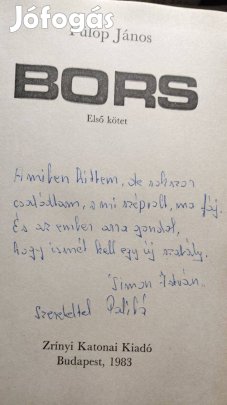 Jófogás
Fülöp János
BORS
Első kötet
Amiben hittem, de sokszor
csalódtam, ami szép volt, ma fáj.
És az ember arra gondol,
hogy ismét kell egy új szabály.
Simon István.
Szeretettel Palibá
Zrínyi Katonai Kiadó
Budapest, 1983